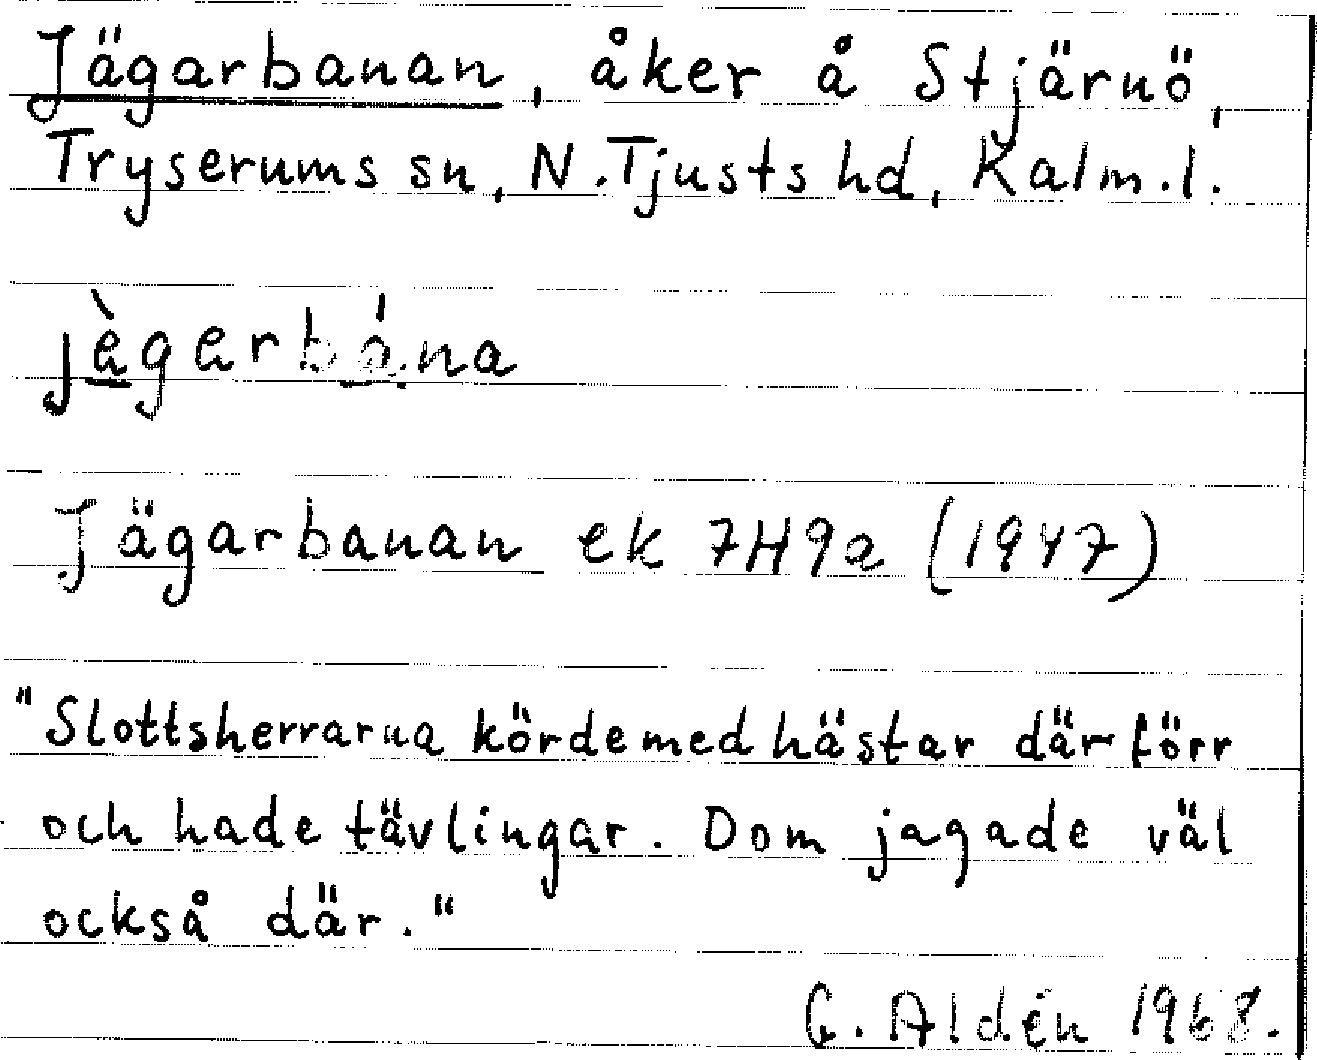 Jägarbanan, åker å Stjärnö,
Tryserums sn, N. Tjusts hd, Kalm. l.
jègerbána
Jägarbanan ek 7H9a (1947)
"Slottsherrarna körde med hästar där förr
och hade tävlingar. Dom jagade väl
också där."
G. Aldén 1968.